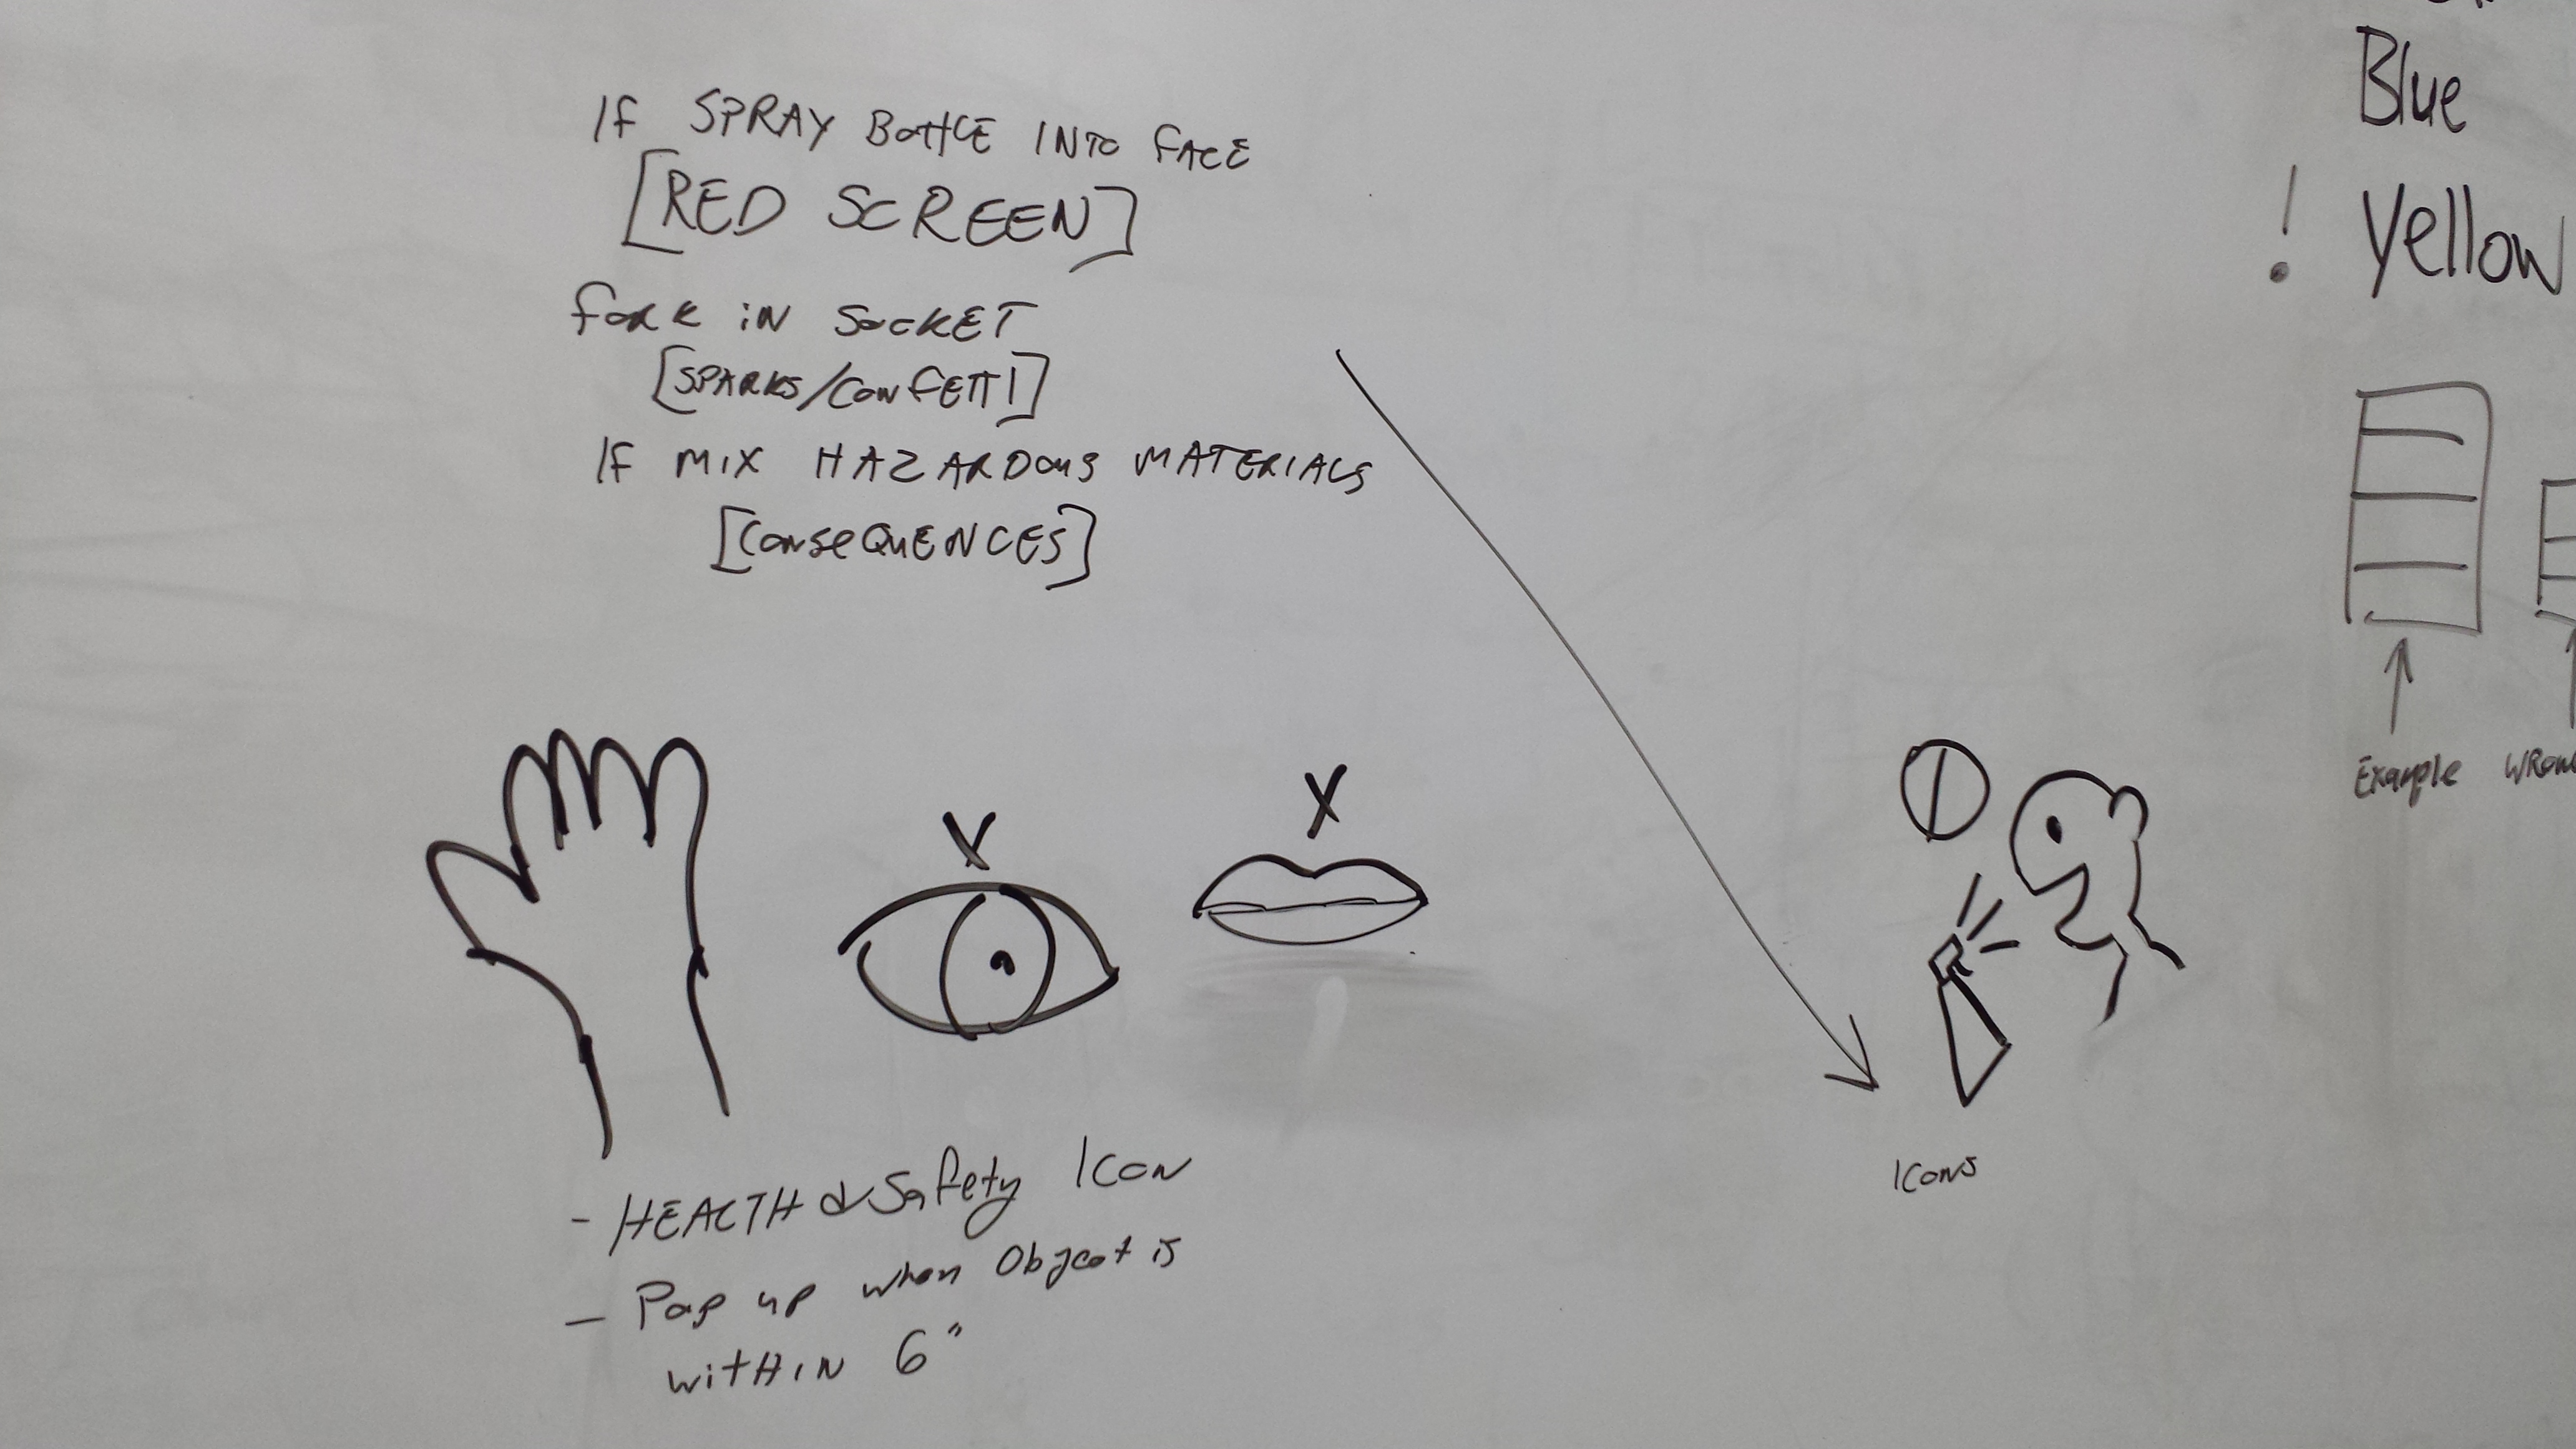 If SPRAY BottLE INTO fACE
[RED SCREEN]
fork iN SockET
[SPARKS/CoNfETTI]
If MIX HAZARDous MATERIALS
[ConseQuENCES]
X
X
- HEALTH & Safety Icon
- Pop up when Object is
withIN 6"
Icons
Blue
! Yellow
Example